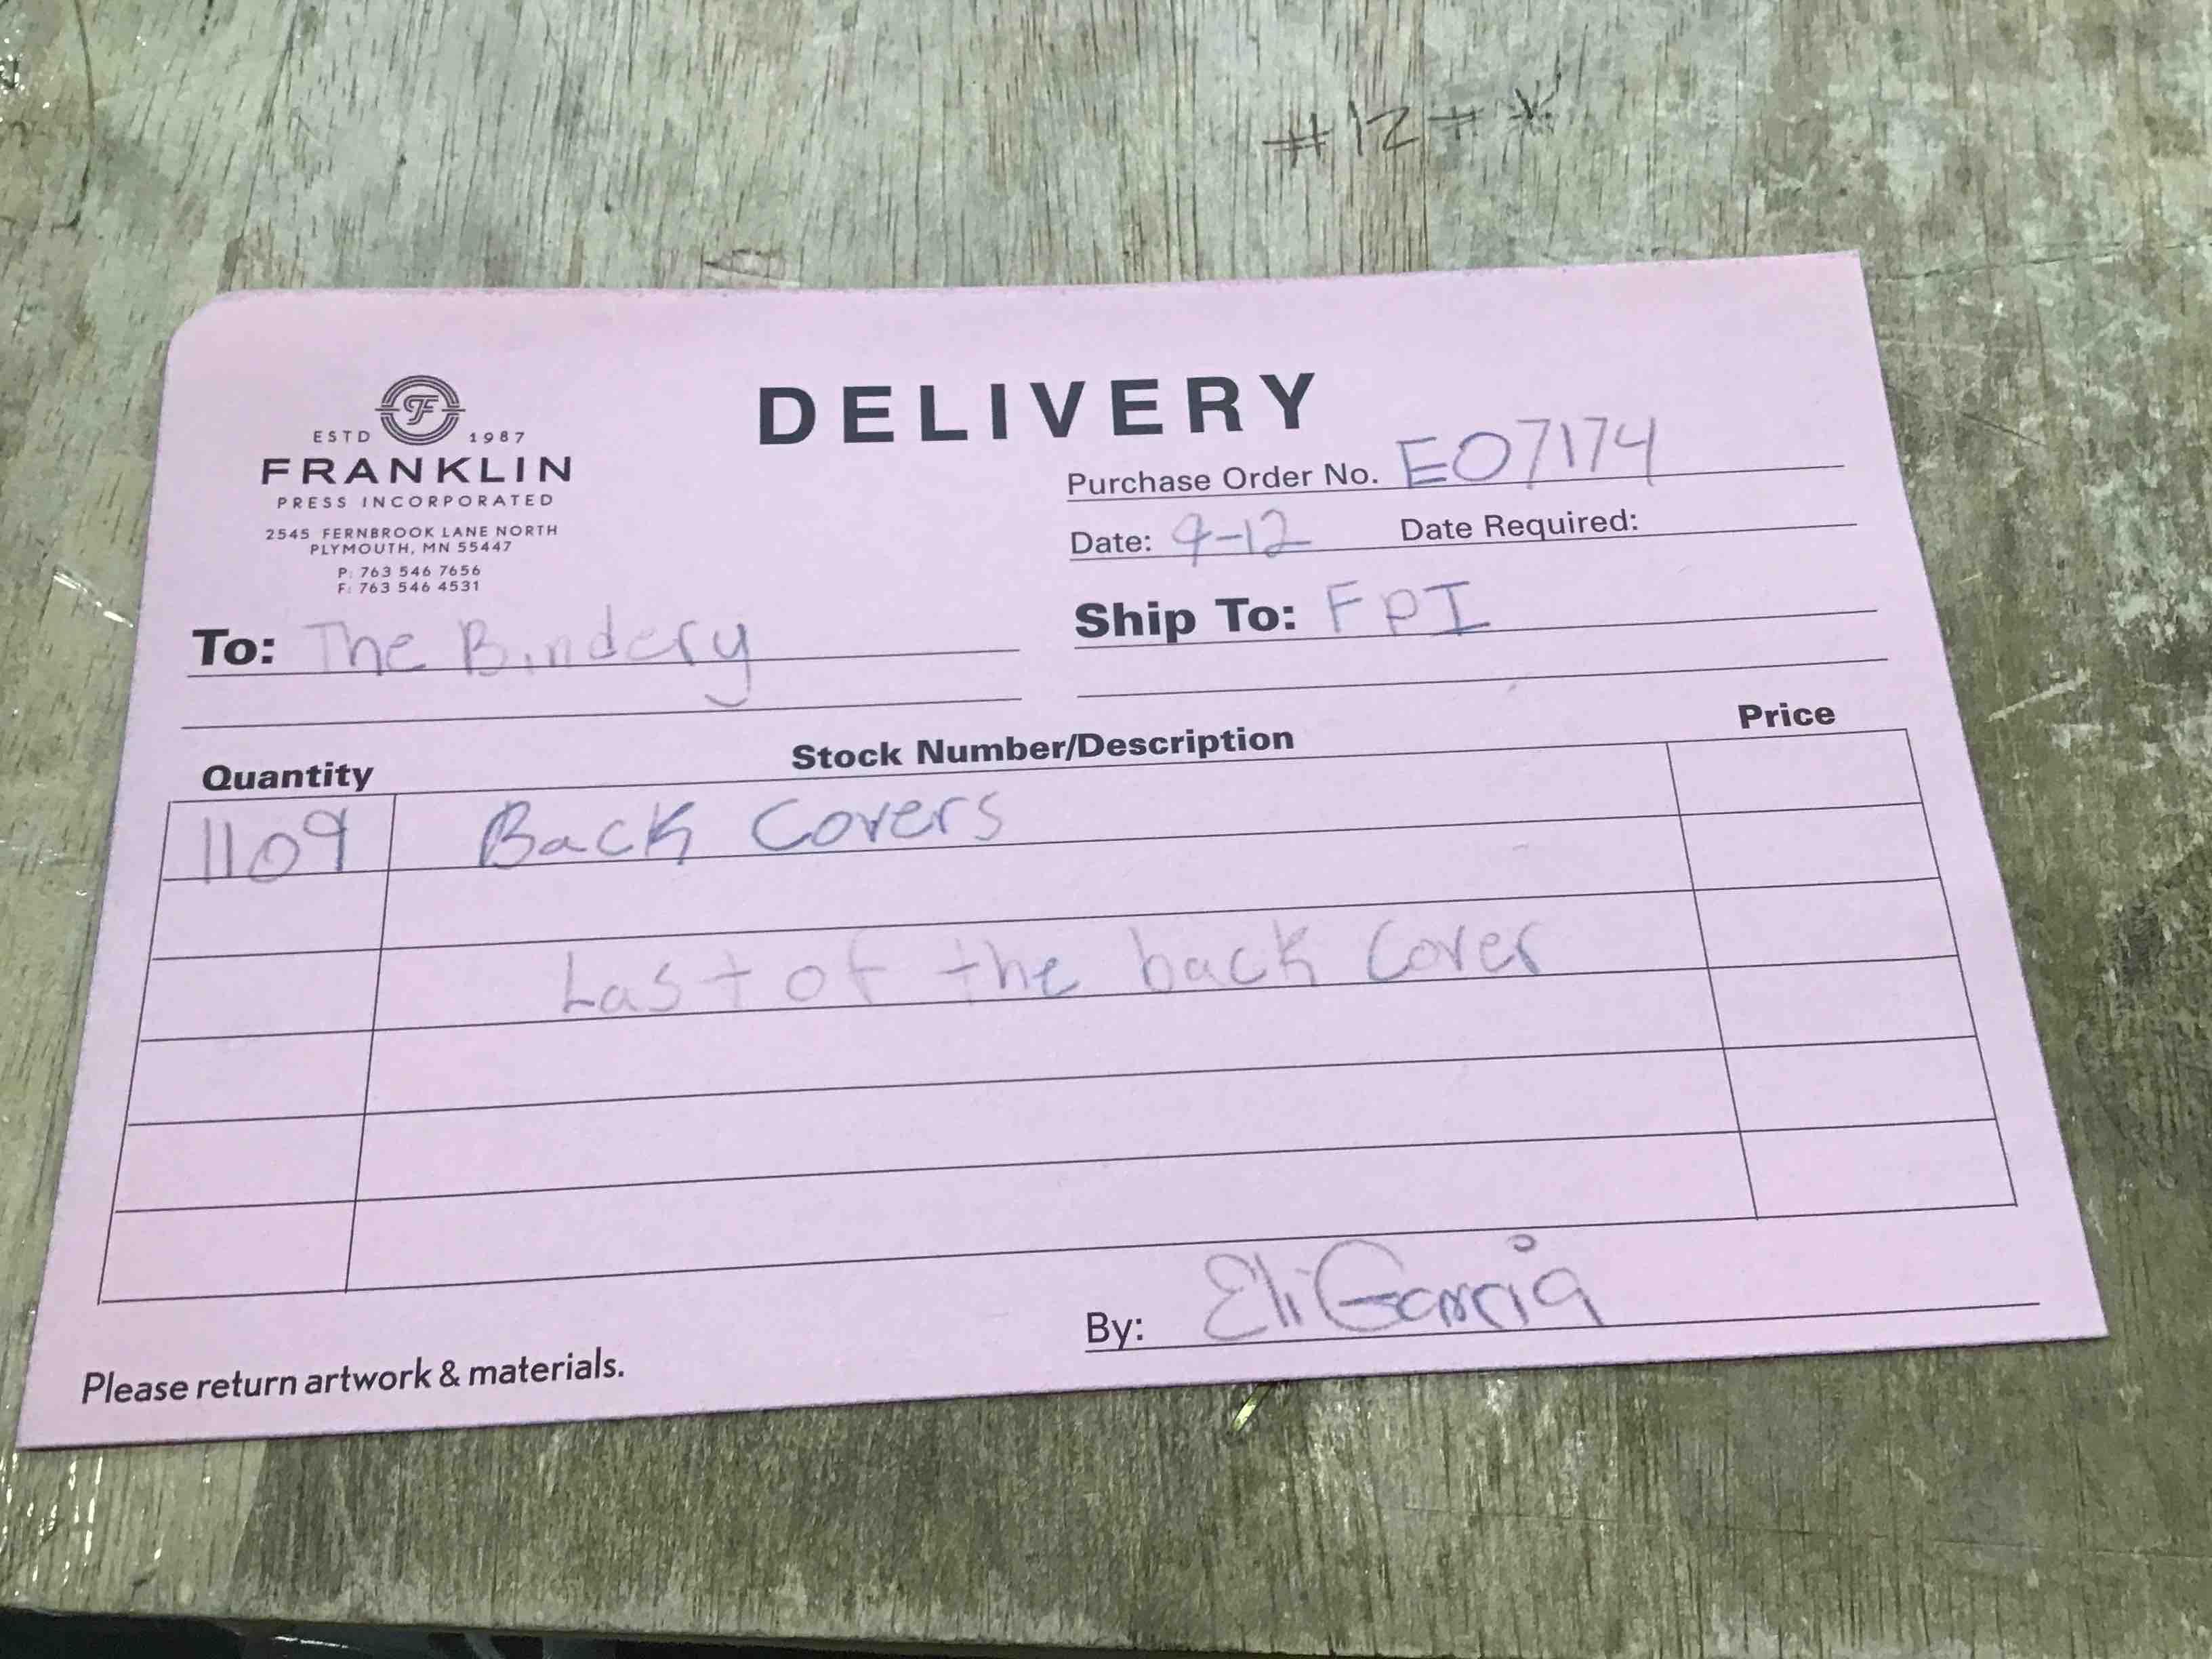 #12#*
DELIVERY
ESTD 1987
FRANKLIN
PRESS INCORPORATED
2545 FERNBROOK LANE NORTH
PLYMOUTH, MN 55447
P: 763 546 7656
F: 763 546 4531
Purchase Order No. E07174
Date: 9-12 Date Required:
To: The Bindery
Ship To: FPI
Quantity Stock Number/Description Price
1109 Back Covers
Last of the back Cover
By: Eli Garcia
Please return artwork & materials.